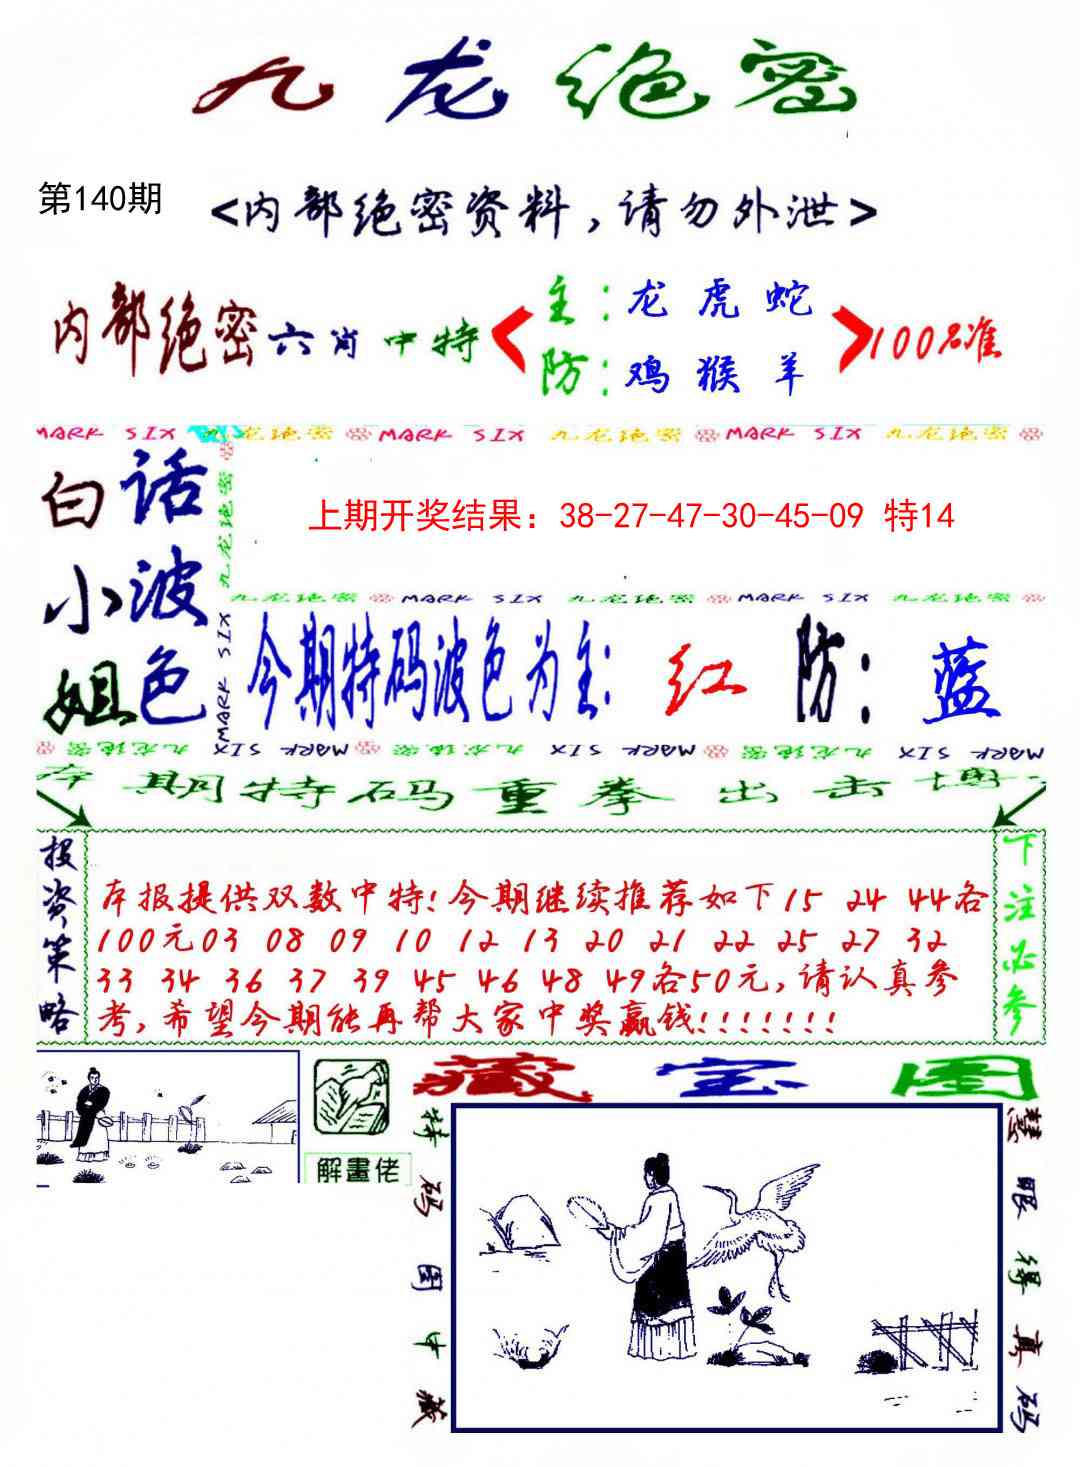 九龙绝密
第140期
<内部绝密资料,请勿外泄>
内部绝密六肖中特
主:龙虎蛇
防:鸡猴羊
100%准
MARK SIX 九龙绝密 MARK SIX 九龙绝密 MARK SIX 九龙绝密
白话
小波
姐色
九龙绝密
MARK SIX
MARK SIX
上期开奖结果：38-27-47-30-45-09 特14
九龙绝密 MARK SIX 九龙绝密 MARK SIX 九龙绝密
今期特码波色为主:红 防:蓝
九龙绝密 MARK SIX 九龙绝密 MARK SIX 九龙绝密 MARK SIX
本期特码重拳出击博
投资策略
本报提供双数中特!今期继续推荐如下15 24 44各
100元03 08 09 10 12 13 20 21 22 25 27 32
33 34 36 37 39 45 46 48 49各50元,请认真参
考,希望今期能再帮大家中奖赢钱!!!!!!!
下注必参
解畫佬
藏宝图
特码图中藏
慧眼得真码